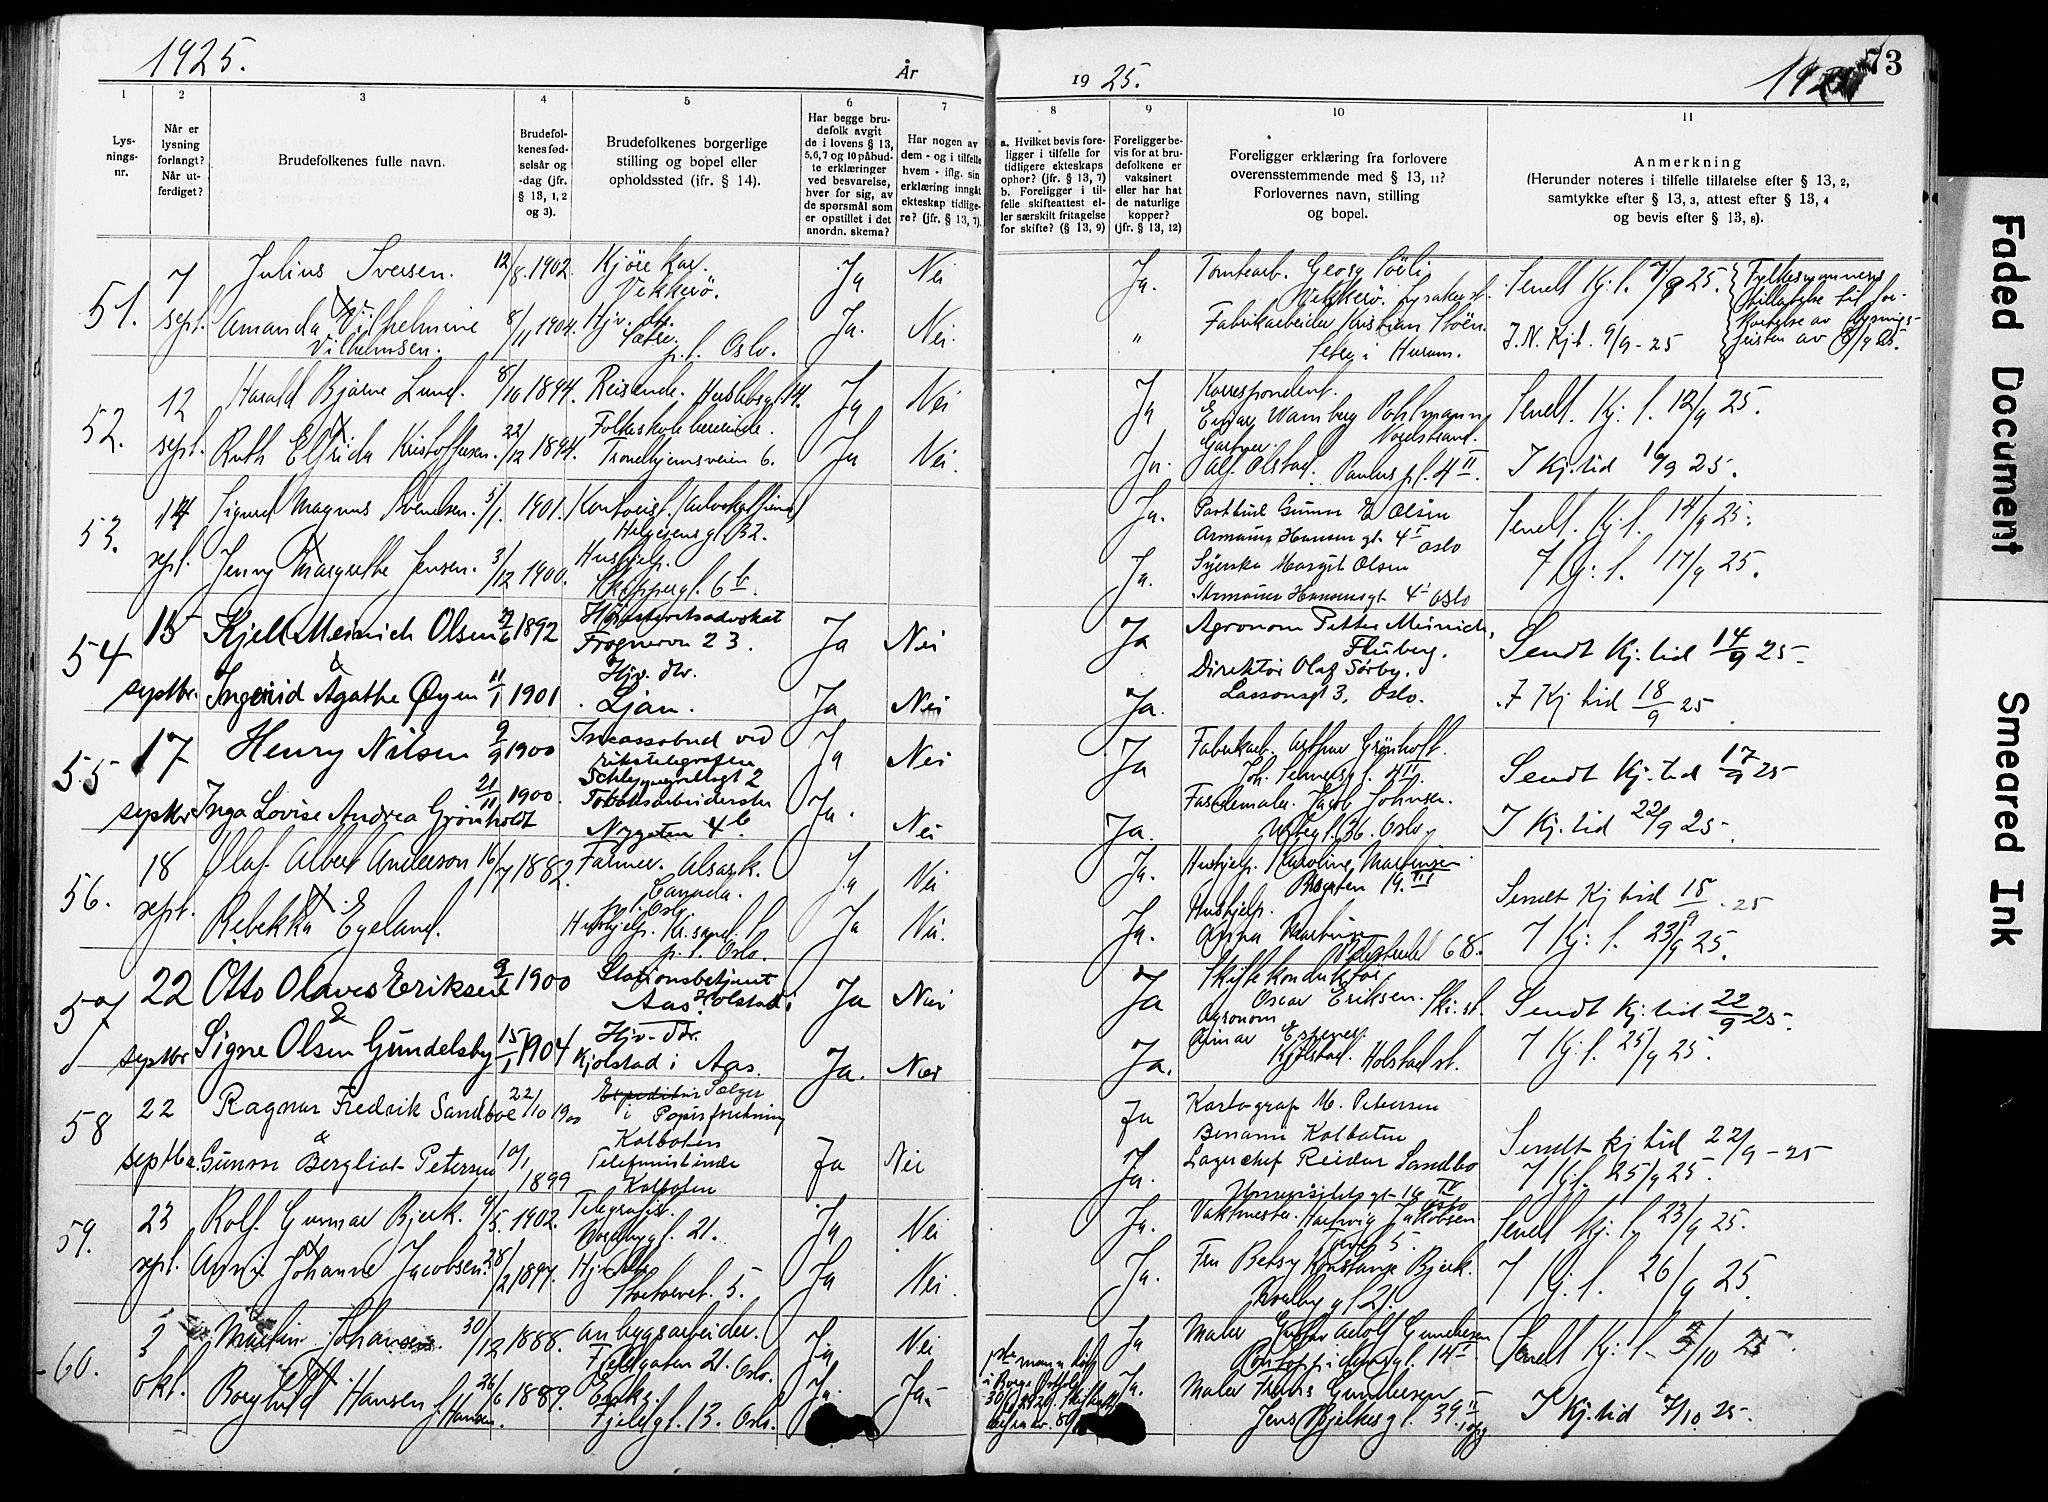 1925.
År
1925.
73
1
2
3
4
5
6
7
8
9
10
11
Lys-
nings-
nr.
Når er
lysning
forlangt?
Når ut-
ferdiget?
Brudefolkenes fulle navn.
Brudefol-
kenes fød-
selsår og
-dag (jfr.
§ 13, 1, 2
og 3).
Brudefolkenes borgerlige
stilling og bopel eller
opholdssted (ifr. § 14).
Har begge bru-
defolk avgit
de i lovens § 13,
5,6,7 og 10 påbud-
te erklæringer
ved besvarelse,
hver for sig, av
de spørsmål som
er opstillet i det
anordn. skema?
Har nogen av
dem - og i tilfelle
hvem - iflg. sin
erklæring inngått
ekteskap tidlige-
re? (jfr. § 13, 7).
a. Hvilket bevis fore-
ligger i tilfelle for
tidligere ekteskaps
ophør? (jfr. § 13, 7)
b. Foreligger i til-
felle skifteattest el-
ler særskilt fritagelse
for skifte? (§ 13, 9)
Foreligger be-
vis for at bru-
defolkene er
vaksinert
eller har hat
de naturlige
kopper?
(jfr. § 13, 12)
Foreligger erklæring fra forlovere
overensstemmende med § 13, 11?
Forlovernes navn, stilling
og bopel.
Anmerkning
(Herunder noteres i tilfelle tillatelse efter § 13, 2,
samtykke efter § 13, 3, attest efter § 13, 4
og bevis efter § 13, 8).
51.
7
sept.
Julius Iversen. 12/8.1902.
Vekkerö.
Ja Nei
Amanda Vilhelmine 8/11 1904.
Vilhelmsen.
Hjv. dtr.
p.t. Oslo.
Ja. Nei.
Ja.
Tomtearb. Georg
Vekkerö. Lysaker st.
Fabrikarbeider Kristian
i Hurum.
Sendt Kj: t. 7/9 25.
I. N. Kj.t. 9/9-25
Fylkesmannens
tillatelse til for-
kortelse av lysnings-
fristen av 8/9 25.
52.
12
sept.
Harald Bjarne Lund. 8/10 1894.
Reisende.
Ja Nei
Ruth Elfrida Kristoffersen. 22/12 1894.
Folkeskolelærerinde.
Trondhjemsveien 6.
Ja Nei.
Ja
Korrespondent.
Einar
Nordstrand.
Ja.
Gartner.
Alf Olstad. Paulus pl. 4 II
Sendt. Kj: t. 12/9 25.
I Kj.tid 16/9 25.
53.
14
sept.
Sigurd Magnus Svendsen. 5/1. 1901.
Kontorist.
Helgesens gt. 32.
Jenny Margrethe Jensen. 3/12 1900.
Hushjelp.
Skippergt. 6 b.
Ja.
Gunnar E Olsen
Armauer Hansens gt. 4 I Oslo
Ja.
Syerske Margit Olsen
Armauer Hansensgt 4 I Oslo
Sendt. Kj. t. 14/9 25.
I Kj: t. 17/9 25.
54
15
septbr.
Kjell Meinich Olsen 2/6 1892
Høiesteretsadvokat
Frognerv 23.
Ja Nei
&
Ingerid Agathe Øyen 11/1 1901
Hjv. dtr.
Ljan.
Ja Nei
Ja
Agronom Petter Meinich,
Fluberg.
Direktör Olaf Sörby,
Lassonsgt 3, Oslo.
Ja.
Sendt Kj.tid 14/9 25-
I Kj tid 18/9 25
55
17
septbr
Henry Nilsen 9/9 1900
Incassobud ved
rikstelegrafen
Ja Nei
Inga Lovise Andrea Grönholdt 21/11 1900.
Tobaksarbeiderske
Nygaten 4 b.
Ja. Nei
Ja
Fabrikarb. Arthur Grönholt.
Ja.
Fasademaler. Jacob Johnsen.
Urtegt. 36. Oslo.
Sendt Kj.tid 17/9 25
I Kj.tid 22/9 25-
56.
18
sept.
Olaf Albert Anderson 16/7 1882.
Farmer. Alsask.
Canada.
p.t. Oslo
Ja Nei
Rebekka Egeland.
Hushjelp. Kr.sand.
p.t. Oslo.
Ja Nei.
Ja.
Hushjelp. Karoline Martinsen
19. III
Hushjelp.
Anna Martinsen
68.
Ja.
Sendt Kj tid 18/9 . 25
I Kj: t. 23/9 25.
57
22
septbr
Otto Olaves Eriksen 9/ 1900
Stationsbetjent
Holstad i
Aas.
Ja Nei
&
Signe Olsen Gundelsby 15/1 1904
Hjv-dtr.
Kjölstad i Aas.
Ja. Nei
Ja
Skiftekonduktör
Oscar Eriksen. Ski. st.
Agronom
Einar Espenes.
Kjölstad. Holstad st.
Ja.
Sendt Kj.tid 22/9 25-
I Kj: t. 25/9 25.
58
22
septbr.
Ragnar Fredrik Sandboe 22/10 1900
Expeditör Selger
i Papirforretning
Kolbotn
&
Gunvor Bergliot Petersen 10/1 1899
Telefonistinde
Kolbotn
Ja Nei
Ja
Kartograf M. Petersen
Kolbotn
Ja.
Lagerchef Reidar Sandbo
Universitetsgt 14 IV
Oslo
Sendt kj tid 22/9-25
I Kj.t. 25/9 25.
59.
23
sept.
Rolf Gunnar Bjerk. 4/5. 1902.
Telegrafist.
Ja Nei
Anna Johanne Jacobsen. 28/2 1897.
Hjv. dtr.
Stortorvet. 5.
Ja Nei.
Ja.
Vaktmester. Hartvig Jakobsen
Ja.
Fru Betsy Konstanse Bjerk.
Sendt Kj. t. 23/9 25.
I Kj. t. 26/9 25.
60.
3
okt.
Martin Johansen. 30/12 1888.
Anlegsarbeider.
Fjeldgaten 21. Oslo.
Ja Nei
Borghild Hansen f. Hansen. 26/6 1889.
Enke.
Fjeldgt. 13. Oslo.
Ja. Ja-
1ste mann död
i Borge
Ja
Maler Gustav Adolf Gundersen
14 I
Ja.
Maler Frans Gundersen
Jens Bjelkes gt. 39. II
Sendt Kj: t. 3/10 25.
I Kj.tid 7/10 25-.
Faded Document
Smeared Ink